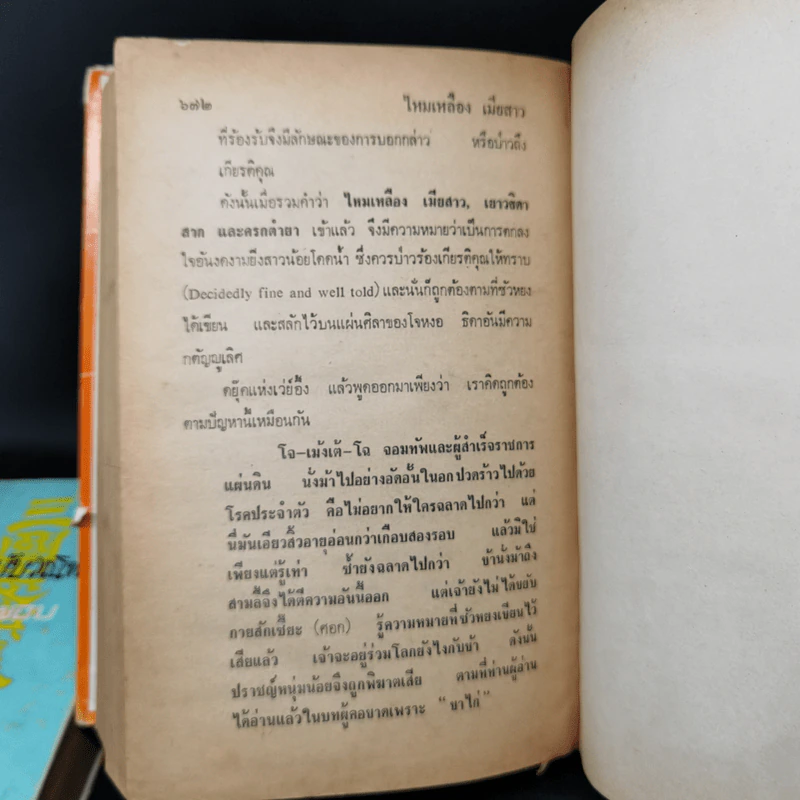 ๖๗๒ ไหมเหลือง เมียสาว
ที่ร้องรับจึงมีลักษณะของการบอกกล่าว หรือป่าวถึง
เกียรติคุณ
ดังนั้นเมื่อรวมคำว่า ไหมเหลือง เมียสาว, เยาวธิดา
สาก และครกตำยา เข้าแล้ว จึงมีความหมายว่าเป็นการตกลง
ใจอันงดงามยิ่งสาวน้อยโดดน้ำ ซึ่งควรป่าวร้องเกียรติคุณให้ทราบ
(Decidedly fine and well told) และนั่นก็ถูกต้องตามที่ซัวหยง
ได้เขียน และสลักไว้บนแผ่นศิลาของโจหงอ ธิดาอันมีความ
กตัญญูเลิศ
ดยุ๊คแห่งเว่ย์อึ้ง แล้วพูดออกมาเพียงว่า เราคิดถูกต้อง
ตามปัญหานี้เหมือนกัน
โจ–เม้งเต้–โฉ จอมทัพและผู้สำเร็จราชการ
แผ่นดิน นั่งม้าไปอย่างอัดอั้นในอกปวดร้าวไปด้วย
โรคประจำตัว คือไม่อยากให้ใครฉลาดไปกว่า แต่
นี่มันเอียวสิ้วอายุอ่อนกว่าเกือบสองรอบ แล้วมิใช่
เพียงแต่รู้เท่า ซ้ำยังฉลาดไปกว่า ข้านั่งม้าถึง
สามลี้จึงได้ตีความอันนี้ออก แต่เจ้ายังไม่ได้ขยับ
กายสักเชี๊ยะ (ศอก) รู้ความหมายที่ซัวหยงเขียนไว้
เสียแล้ว เจ้าจะอยู่ร่วมโลกยังไงกับข้า ดังนั้น
ปราชญ์หนุ่มน้อยจึงถูกพิฆาตเสีย ตามที่ท่านผู้อ่าน
ได้อ่านแล้วในบทผู้คอขาดเพราะ "ขาไก่"